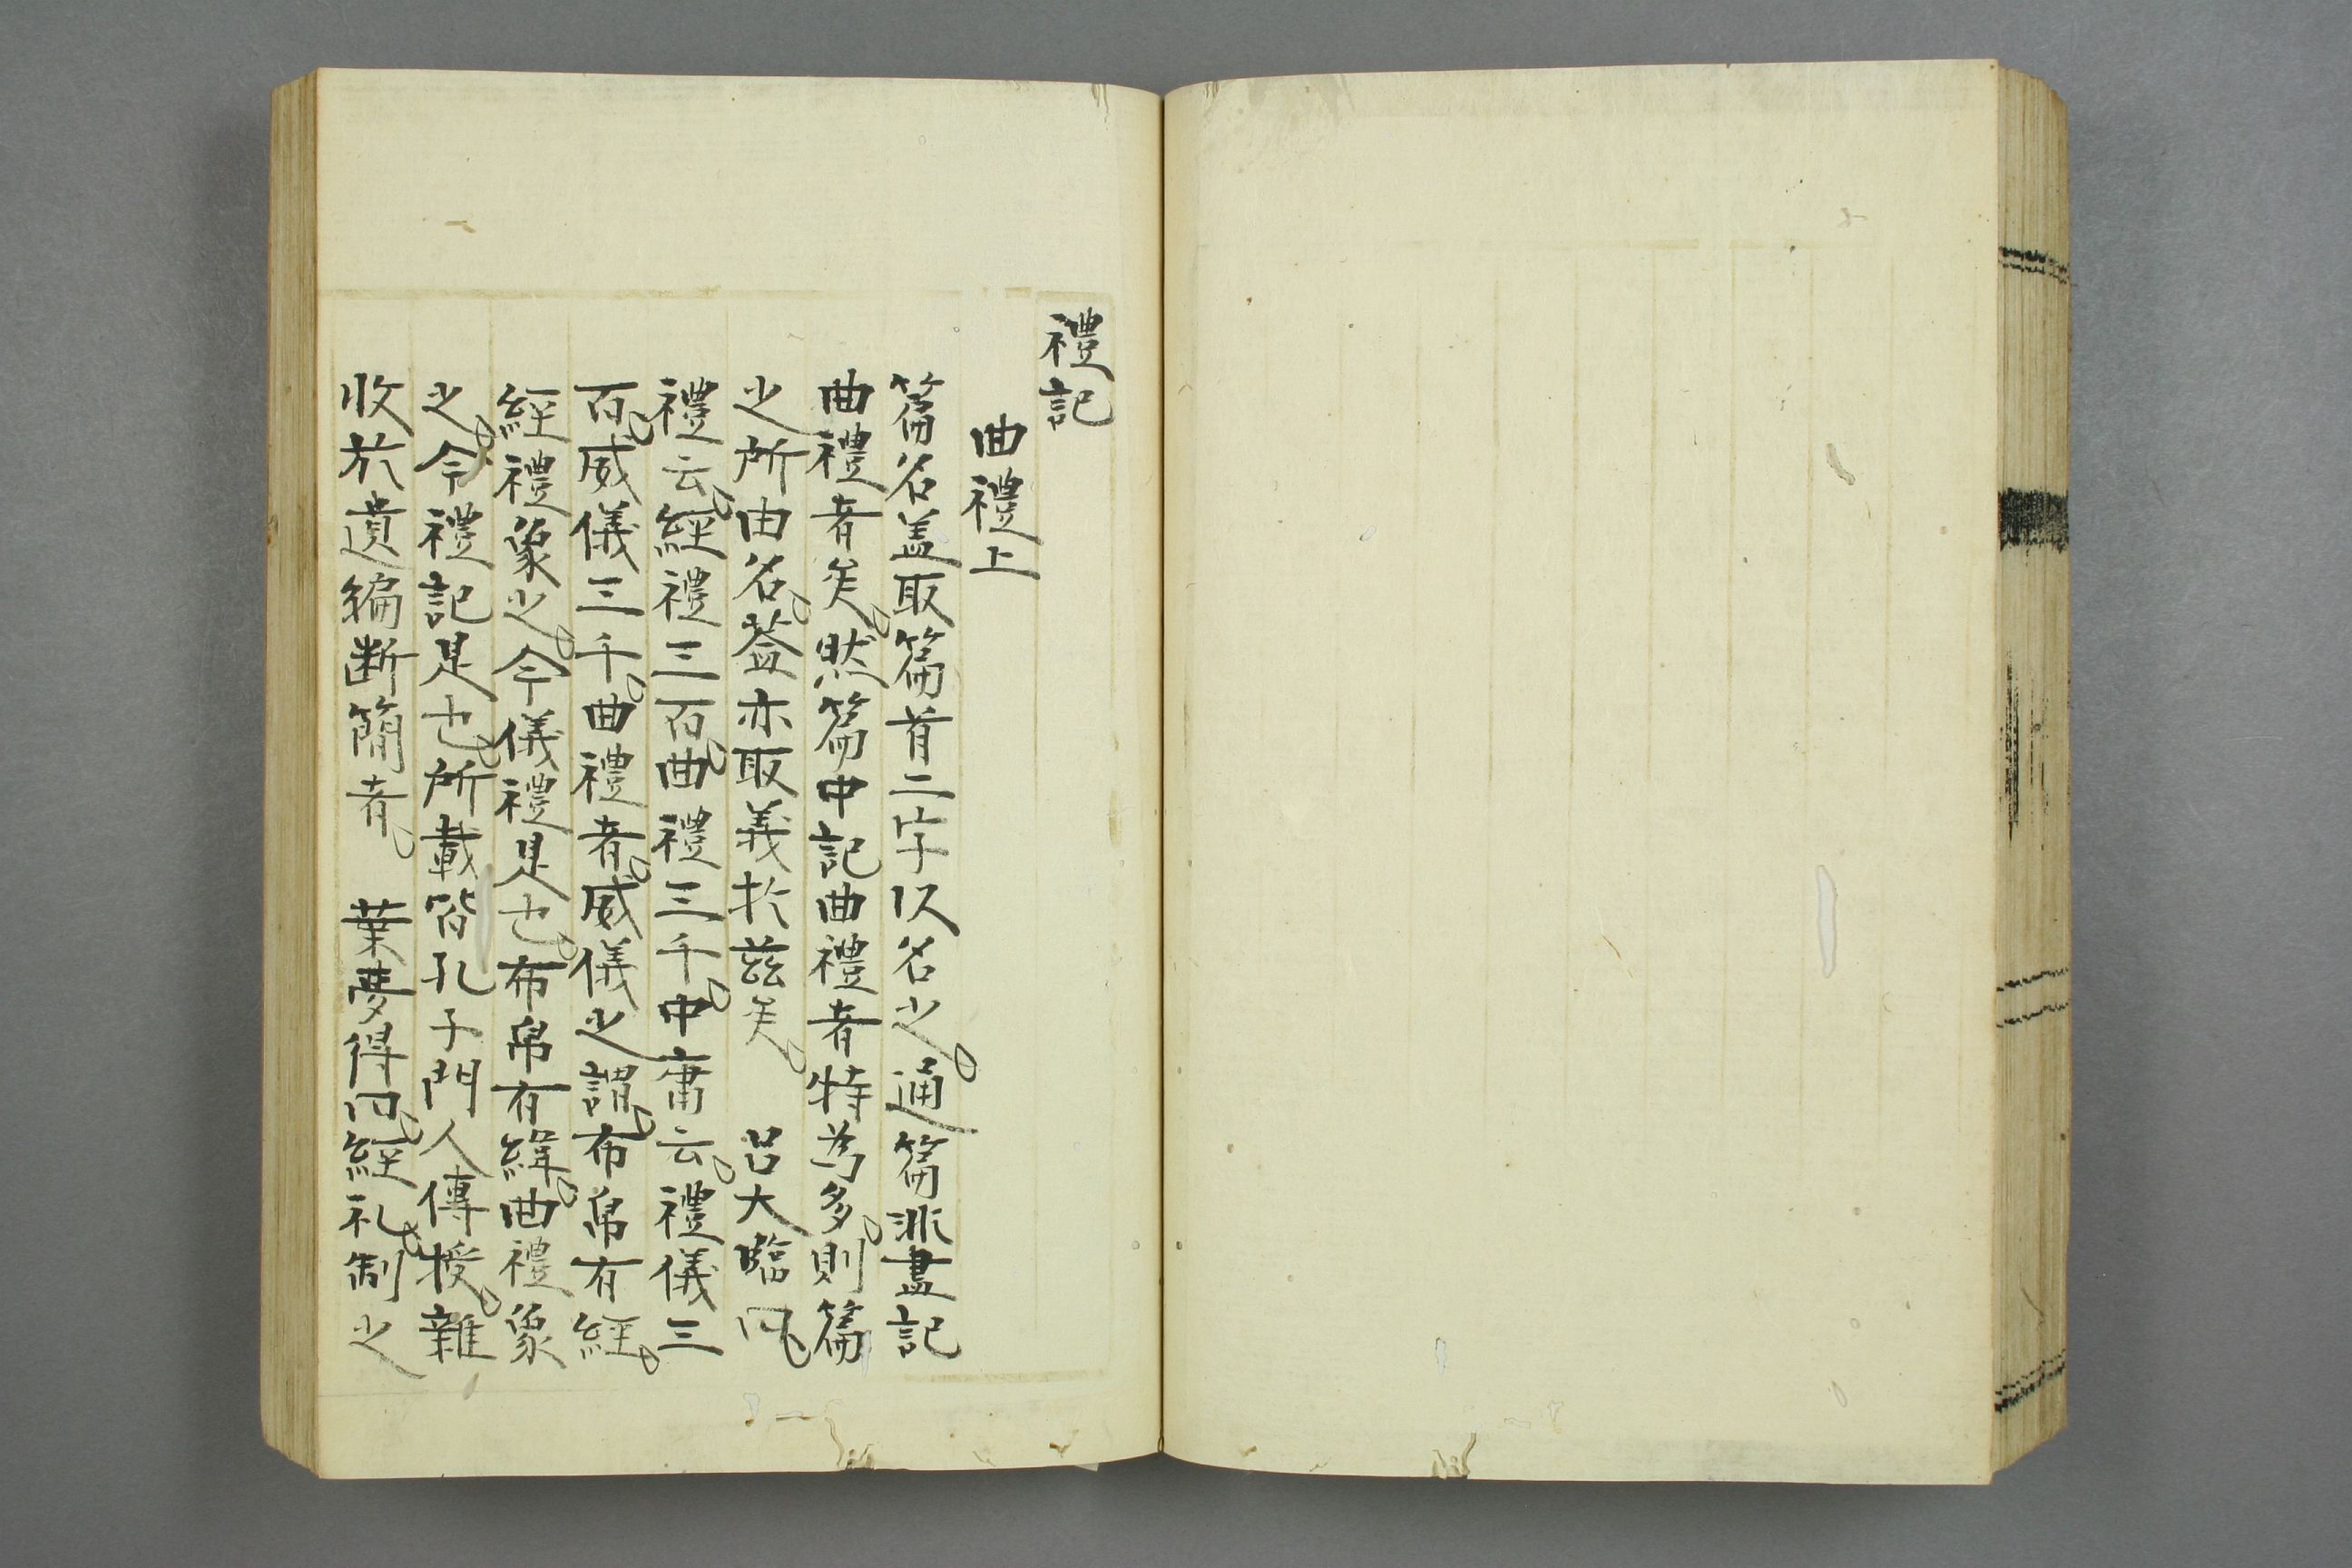 禮記
曲禮上
篇名盖取篇首二字以名之。通篇非盡記
曲禮者矣。然篇中記曲禮者特為多。則篇
之所由名。蓋亦取義於茲矣。 呂大臨曰。
禮云。經禮三百。曲禮三千。中庸云。禮儀三
百。威儀三千。曲禮者。威儀之謂。布帛有經。
經禮象之。今儀禮是也。布帛有緯。曲禮象
之。今禮記是也。所載皆孔子門人傳授。雜
收於遺編断簡者。 葉夢得曰。經礼。制之